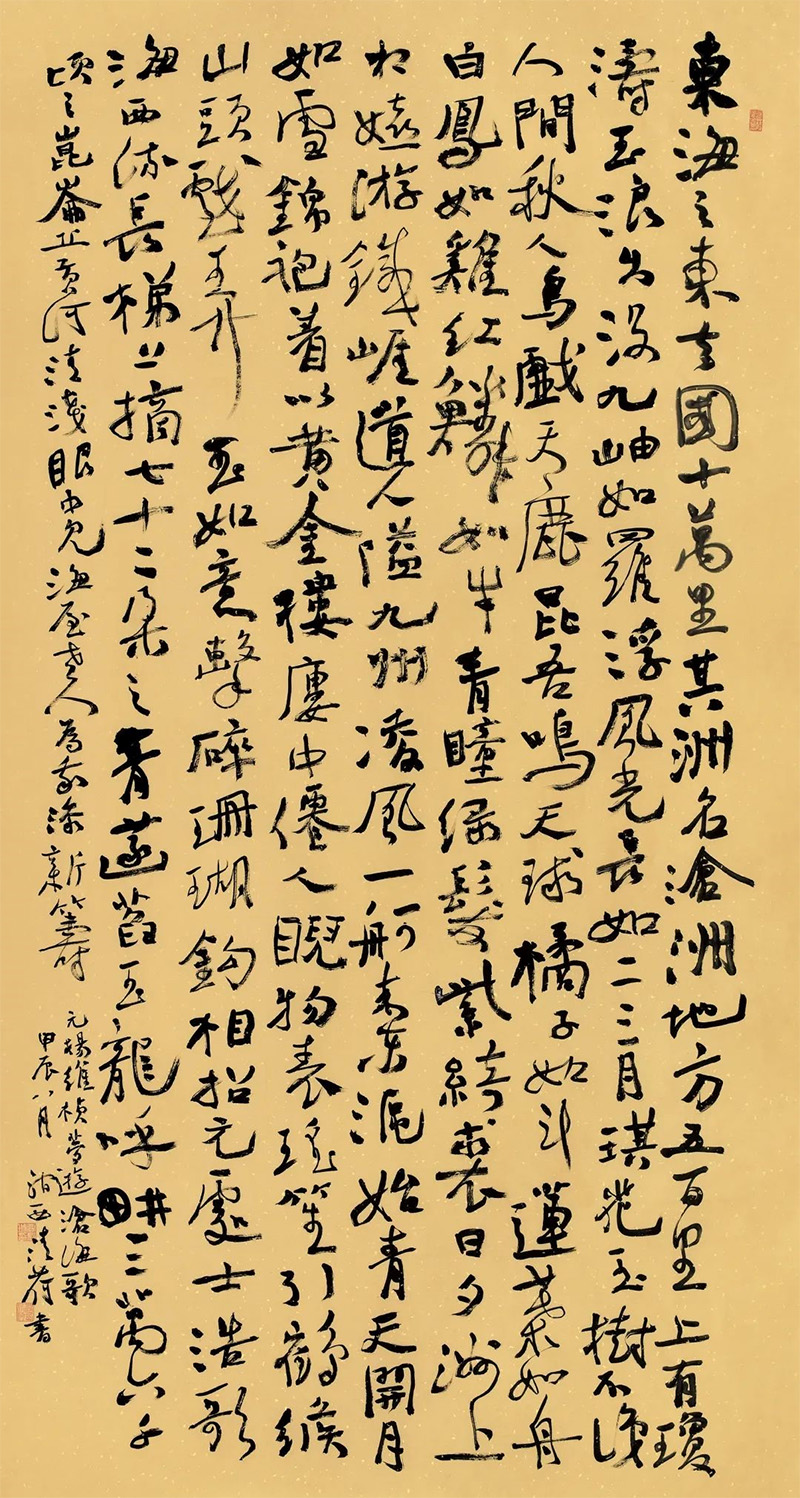 東海之東去國十萬里其洲名滄洲地方五百里上有瓊
濤玉浪出沒九岫如羅浮風光長如二三月琪花玉樹不識
人間秋人鳥戲天鹿昆吾鳴天球橘子如斗蓮葉如舟
白鳳如雞紅鱗如牛青瞳綠髮紫綺裘日夕洲上
相嬉游鐵崖道人隘九州凌風一舸來東漚始青天開月
如雪錦袍着以黃金樓樓中僊人睨物表瑤笙引鶴緱
山頭戲弄玉如意擊碎珊瑚鈎相招元處士浩歌
海西流長梯上摘七十二朵之青菡萏玉龍呼畊三萬六千
頃之崑崙丘黃河清淺眼中見海屋老人為我添新籌
元楊維楨夢遊滄海歌
甲辰八月
西清荷書